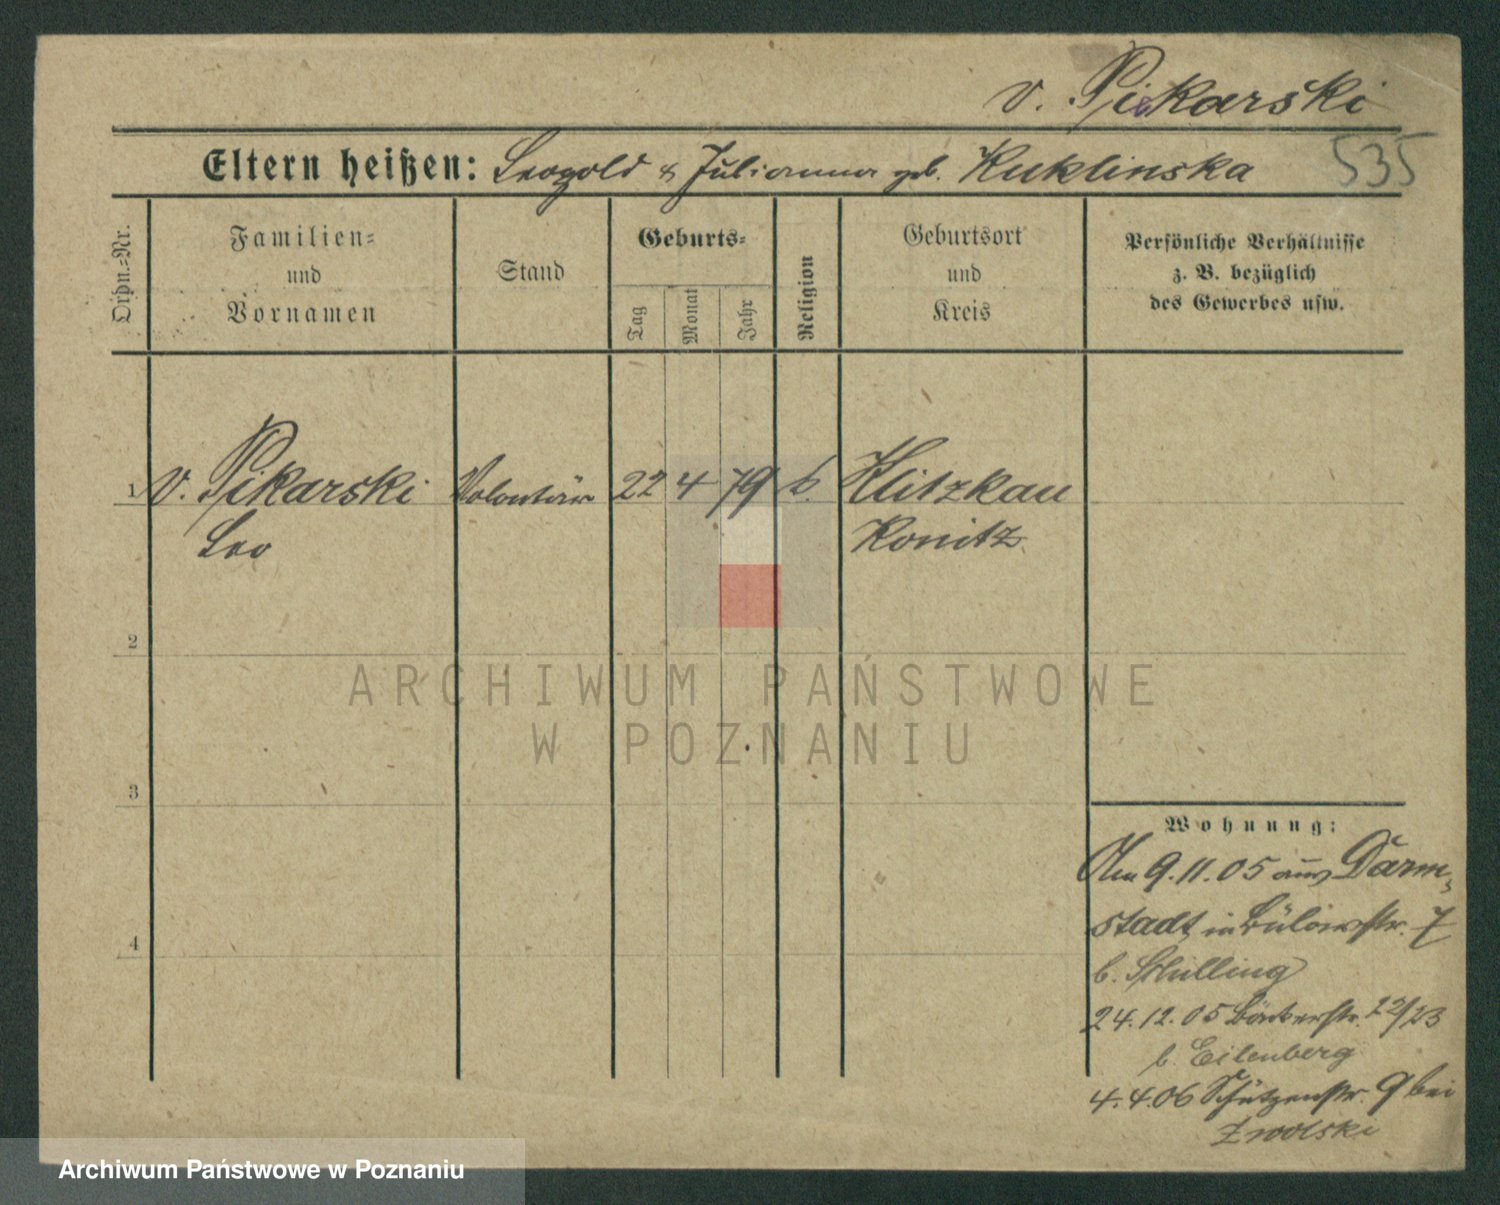 v. Piekarski
Eltern heißen: Leopold & Julianna geb. Kuklinska
535
Ordn.-Nr.
Familien-
und
Vornamen
Stand
Geburts-
Tag
Monat
Jahr
Religion
Geburtsort
und
Kreis
Persönliche Verhältnisse
z. B. bezüglich
des Gewerbes usw.
1 v. Pikarski Volontär 22 4 79 k. Klitzkau
Leo Konitz
2
3
4
Wohnung:
Am 9.11.05 aus Darm-
stadt in Bülowstr. 7
b. Schilling
24.12.05 Bäckerstr. 22/23
b. Eilenberg
4.4.06 Schützenstr. 9 bei
Zwolski
ARCHIWUM PAŃSTWOWE
W POZNANIU
Archiwum Państwowe w Poznaniu